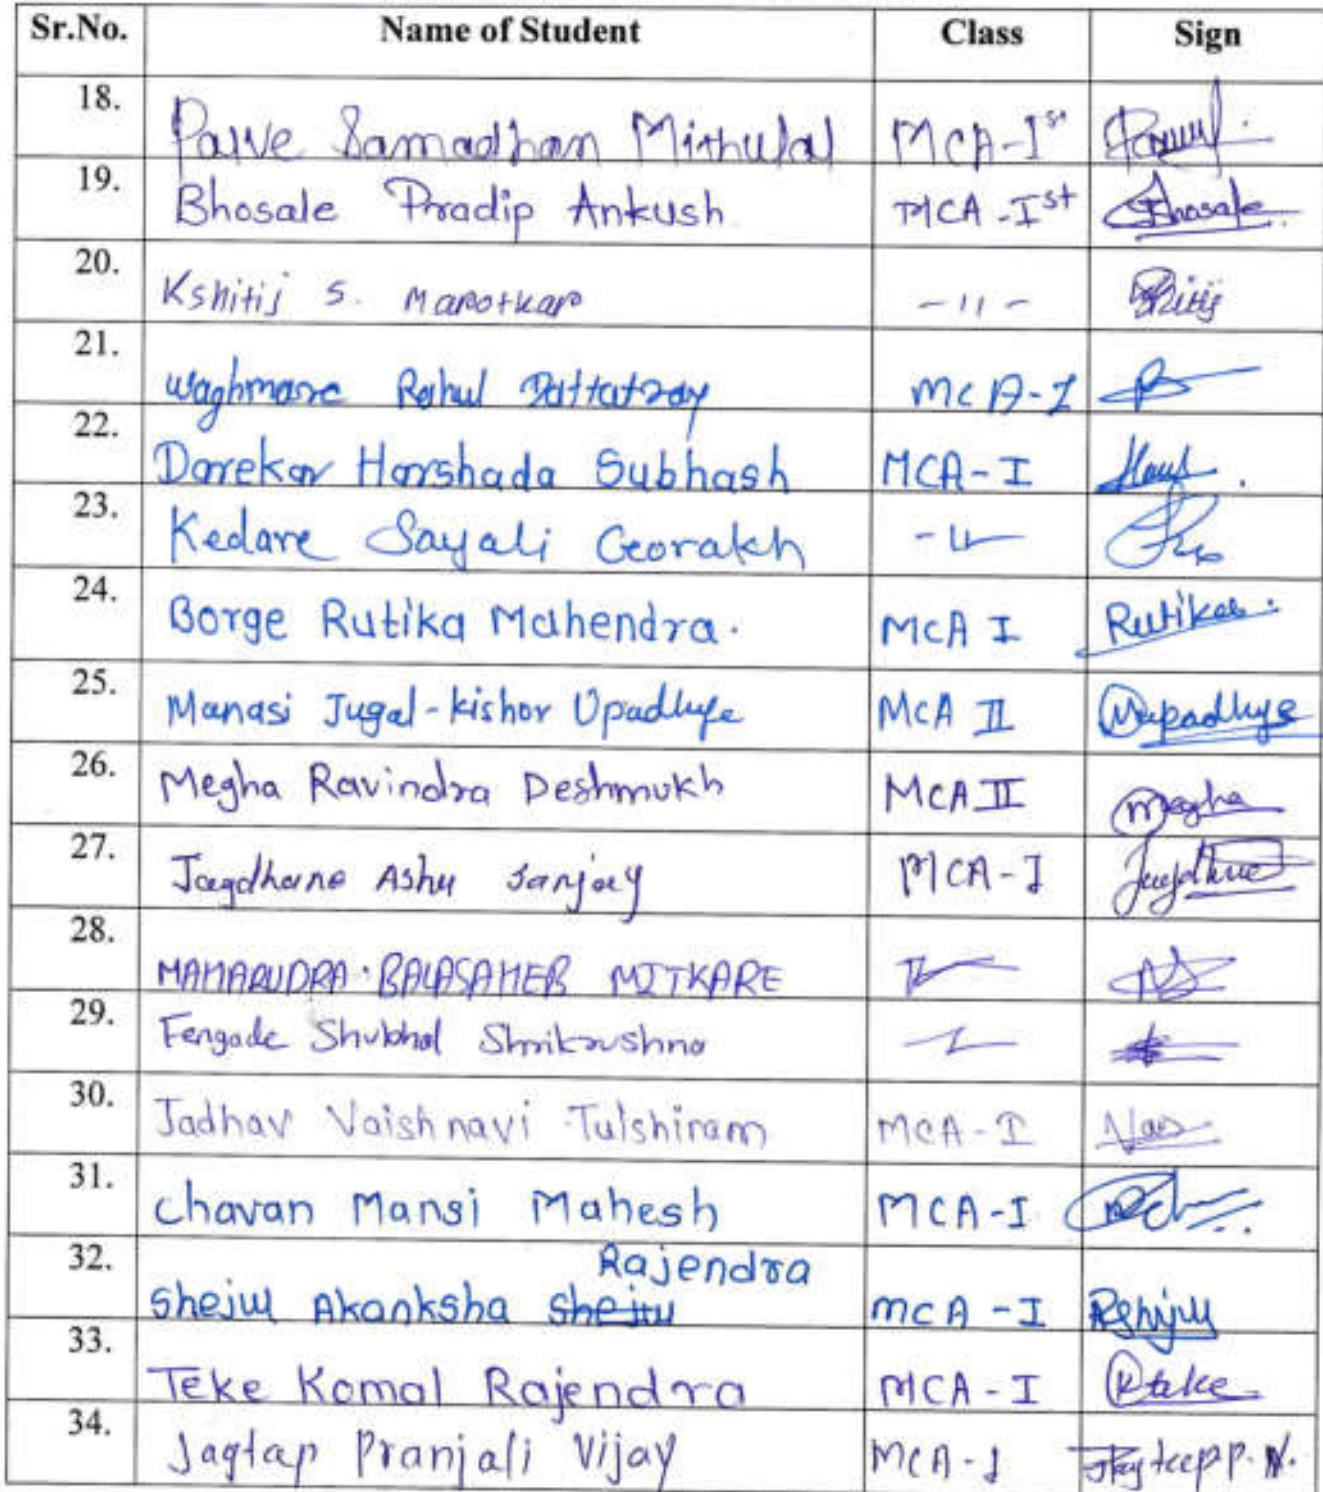 Sr.No. Name of Student Class Sign
18. Palve Samadhan Mithulal MCA-Ist
19. Bhosale Pradip Ankush MCA-Ist Bhosale
20. Kshitij S. Marotkar -11-
21. Waghmare Rahul Dattatray MCA-I
22. Darekar Harshada Subhash MCA-I
23. Kedare Sayali Gorakh -11-
24. Borge Rutika Mahendra. MCA I Rutika
25. Manasi Jugal-kishor Upadhye MCA II Mupadhye
26. Megha Ravindra Deshmukh MCA II Megha
27. Jagdhane Ashu Sanjay MCA-I
28. MAHARUDRA. BALASAHEB MITKARE
29. Fengade Shubhal Shrikrushna
30. Jadhav Vaishnavi Tulshiram MCA-I
31. Chavan Mansi Mahesh MCA-I
Rajendra
32. Shejul Akanksha Shejul MCA-I
33. Teke Komal Rajendra MCA-I
34. Jagtap Pranjali Vijay MCA-I